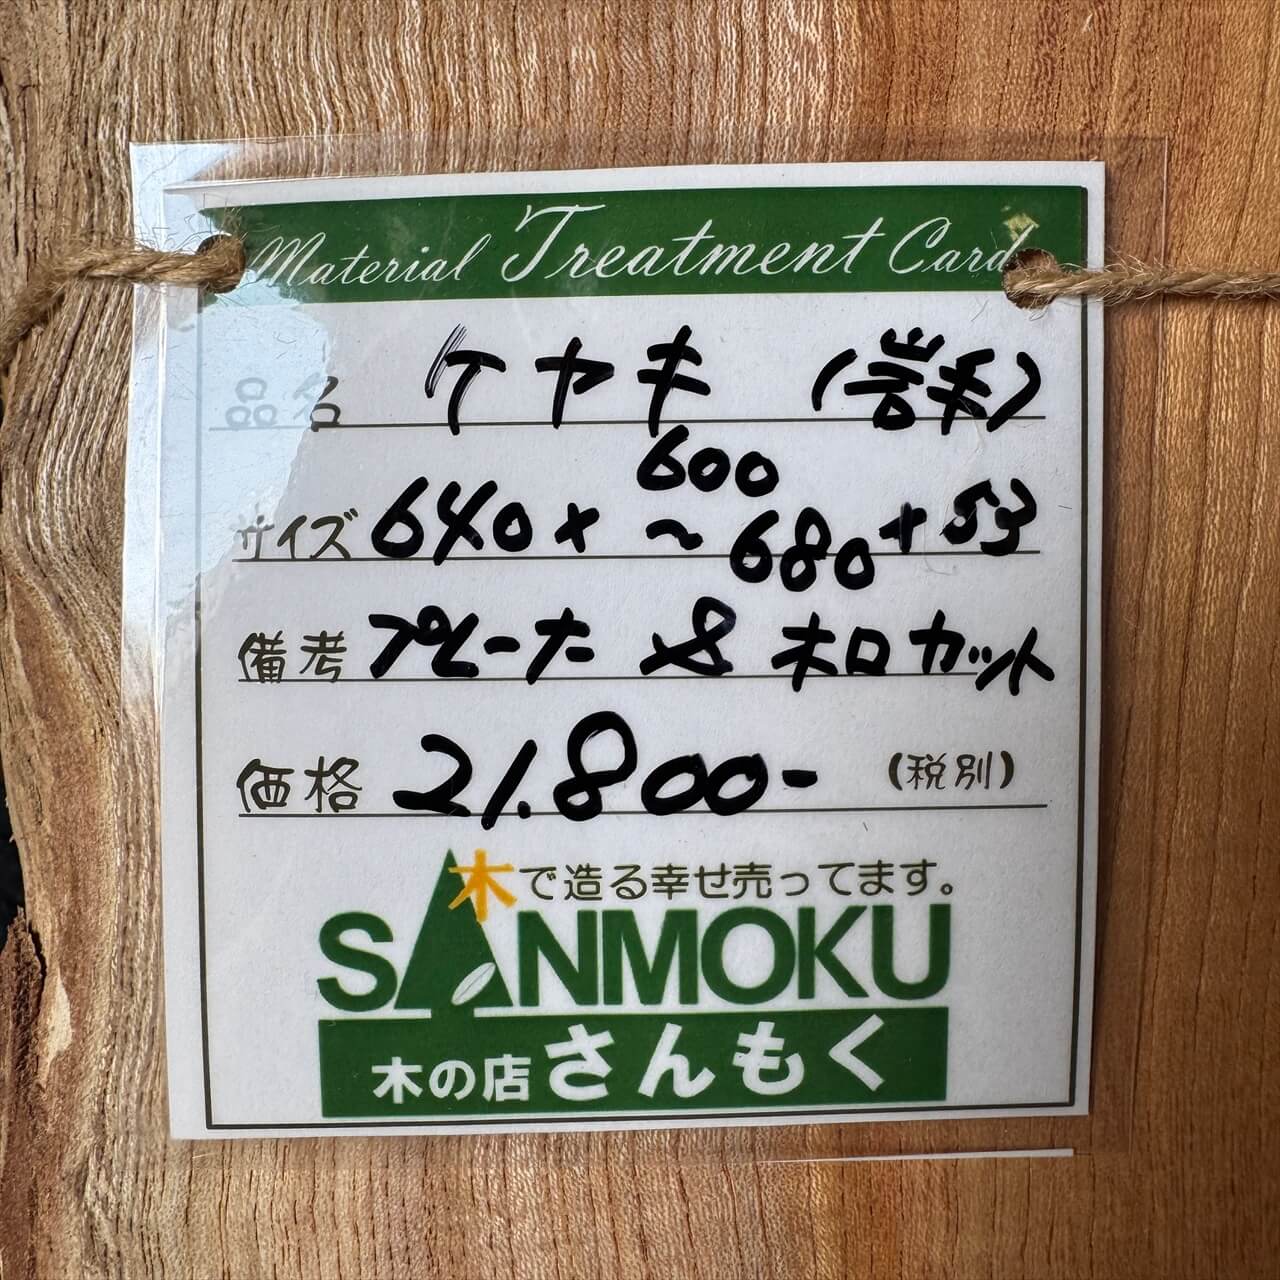 Material Treatment Card
品名 ケヤキ (岩手)
サイズ 640 × 600 ~ 680 + 53
備考 プレーナー & 木口カット
価格 21.800- (税別)
木で造る幸せ売ってます。
SANMOKU
木の店さんもく